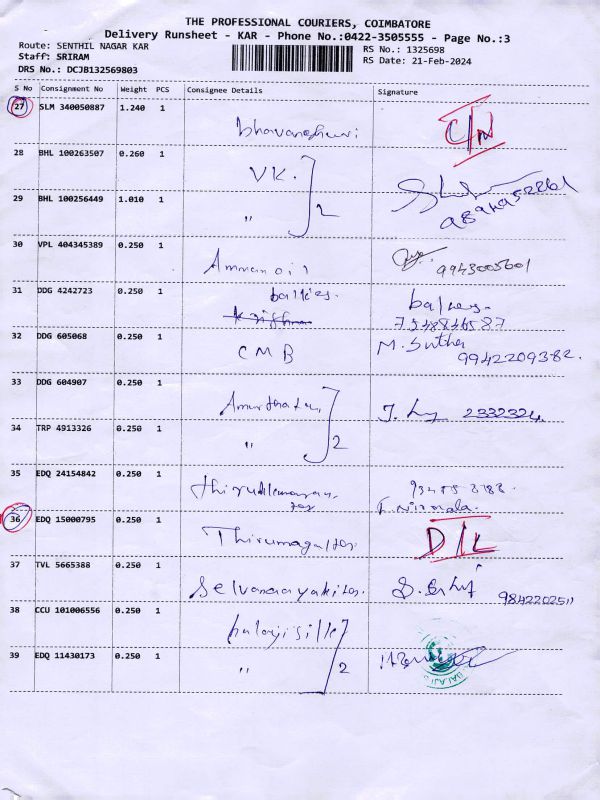 THE PROFESSIONAL COURIERS, COIMBATORE
Delivery Runsheet - KAR - Phone No.:0422-3505555 - Page No.:3
Route: SENTHIL NAGAR KAR
RS No.: 1325698
Staff: SRIRAM
RS Date: 21-Feb-2024
DRS No.: DCJB132569803
S No Consignment No Weight PCS Consignee Details Signature
27 SLM 340050887 1.240 1
C/N
28 BHL 100263507 0.260 1
VK.
29 BHL 100256449 1.010 1
" 2
30 VPL 404345389 0.250 1
Amman oil 9943005601
31 DDG 4242723 0.250 1
balkies.
32 DDG 605068 0.250 1
CMB M. Sutha 9942209382.
33 DDG 604907 0.250 1
2332324
34 TRP 4913326 0.250 1
" 2
35 EDQ 24154842 0.250 1
F. Nirmala.
36 EDQ 15000795 0.250 1
D/L
37 TVL 5665388 0.250 1
9842202511
38 CCU 101006556 0.250 1
balaji silk
39 EDQ 11430173 0.250 1
" 2
BALAJI